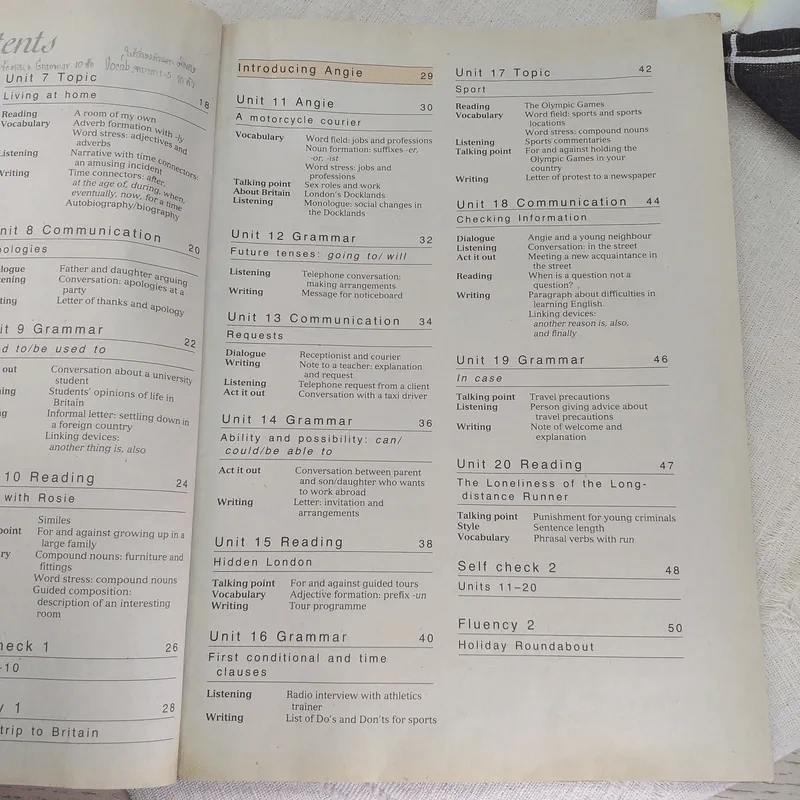 tents
Grammar
Vocab
Unit 7 Topic
Living at home 18
Reading A room of my own
Vocabulary Adverb formation with -ly
Word stress: adjectives and
adverbs
Listening Narrative with time connectors:
an amusing incident
Writing Time connectors: after,
at the age of, during, when,
eventually, now, for a time
Autobiography/biography
nit 8 Communication 20
pologies
logue Father and daughter arguing
tening Conversation: apologies at a
party
ting Letter of thanks and apology
it 9 Grammar 22
d to/be used to
out Conversation about a university
student
ning Students' opinions of life in
Britain
ng Informal letter: settling down in
a foreign country
Linking devices:
another thing is, also
10 Reading 24
with Rosie
Similes
point For and against growing up in a
large family
ry Compound nouns: furniture and
fittings
Word stress: compound nouns
Guided composition:
description of an interesting
room
heck 1 26
-10
y 1 28
trip to Britain
Introducing Angie 29
Unit 11 Angie 30
A motorcycle courier
Vocabulary Word field: jobs and professions
Noun formation: suffixes -er,
-or, -ist
Word stress: jobs and
professions
Talking point Sex roles and work
About Britain London's Docklands
Listening Monologue: social changes in
the Docklands
Unit 12 Grammar 32
Future tenses: going to/ will
Listening Telephone conversation:
making arrangements
Writing Message for noticeboard
Unit 13 Communication 34
Requests
Dialogue Receptionist and courier
Writing Note to a teacher: explanation
and request
Listening Telephone request from a client
Act it out Conversation with a taxi driver
Unit 14 Grammar 36
Ability and possibility: can/
could/be able to
Act it out Conversation between parent
and son/daughter who wants
to work abroad
Writing Letter: invitation and
arrangements
Unit 15 Reading 38
Hidden London
Talking point For and against guided tours
Vocabulary Adjective formation: prefix -un
Writing Tour programme
Unit 16 Grammar 40
First conditional and time
clauses
Listening Radio interview with athletics
trainer
Writing List of Do's and Don'ts for sports
Unit 17 Topic 42
Sport
Reading The Olympic Games
Vocabulary Word field: sports and sports
locations
Word stress: compound nouns
Listening Sports commentaries
Talking point For and against holding the
Olympic Games in your
country
Writing Letter of protest to a newspaper
Unit 18 Communication 44
Checking Information
Dialogue Angie and a young neighbour
Listening Conversation: in the street
Act it out Meeting a new acquaintance in
the street
Reading When is a question not a
question?
Writing Paragraph about difficulties in
learning English
Linking devices:
another reason is, also,
and finally
Unit 19 Grammar 46
In case
Talking point Travel precautions
Listening Person giving advice about
travel precautions
Writing Note of welcome and
explanation
Unit 20 Reading 47
The Loneliness of the Long-
distance Runner
Talking point Punishment for young criminals
Style Sentence length
Vocabulary Phrasal verbs with run
Self check 2 48
Units 11–20
Fluency 2 50
Holiday Roundabout